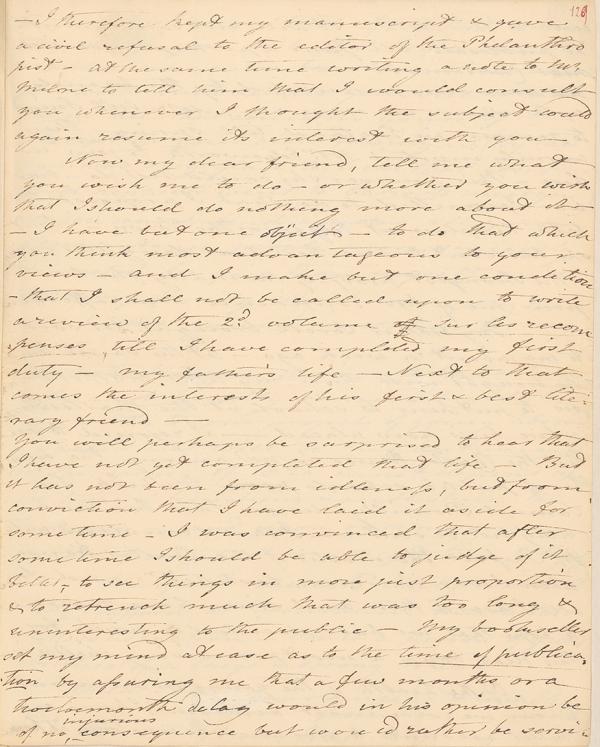 128
— I therefore kept my manuscript & gave
a civil refusal to the editor of the Philanthro
pist — at the same time writing a note to Mr.
Milne to tell him that I would consult
you whenever I thought the subject could
again resume its interest with you —
Now my dear friend, tell me what
you wish me to do — or whether you wish
that I should do nothing more about it —
— I have but one object — to do that which
you think most advantageous to your
views — and I make but one condition
— that I shall not be called upon to write
a review of the 2d. volume sur les recom
penses till I have completed my first
duty — my father's life — Next to that
comes the interests of his first & best lite-
rary friend —
You will perhaps be surprised to hear that
I have not yet completed that life — But
it has not been from idleness, but from
conviction that I have laid it aside for
some time — I was convinced that after
some time I should be able to judge of it
better, to see things in more just proportion
& to retrench much that was too long &
uninteresting to the public — My bookseller
set my mind at ease as to the time of publica-
tion by assuring me that a few months or a
twelvemonth delay would in his opinion be
of no injurious consequence but would rather be servi-